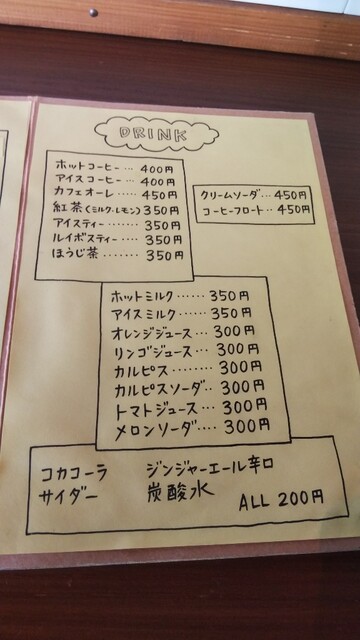 DRINK
ホットコーヒー… 400円
アイスコーヒー… 400円
カフェオーレ… 450円
紅茶(ミルク・レモン)350円
アイスティー…… 350円
ルイボスティー…… 350円
ほうじ茶…… 350円
クリームソーダ… 450円
コーヒーフロート… 450円
ホットミルク…… 350円
アイスミルク…… 350円
オレンジジュース… 300円
リンゴジュース… 300円
カルピス……… 300円
カルピスソーダ… 300円
トマトジュース… 300円
メロンソーダ…… 300円
コカコーラ ジンジャーエール辛口
サイダー 炭酸水
ALL 200円